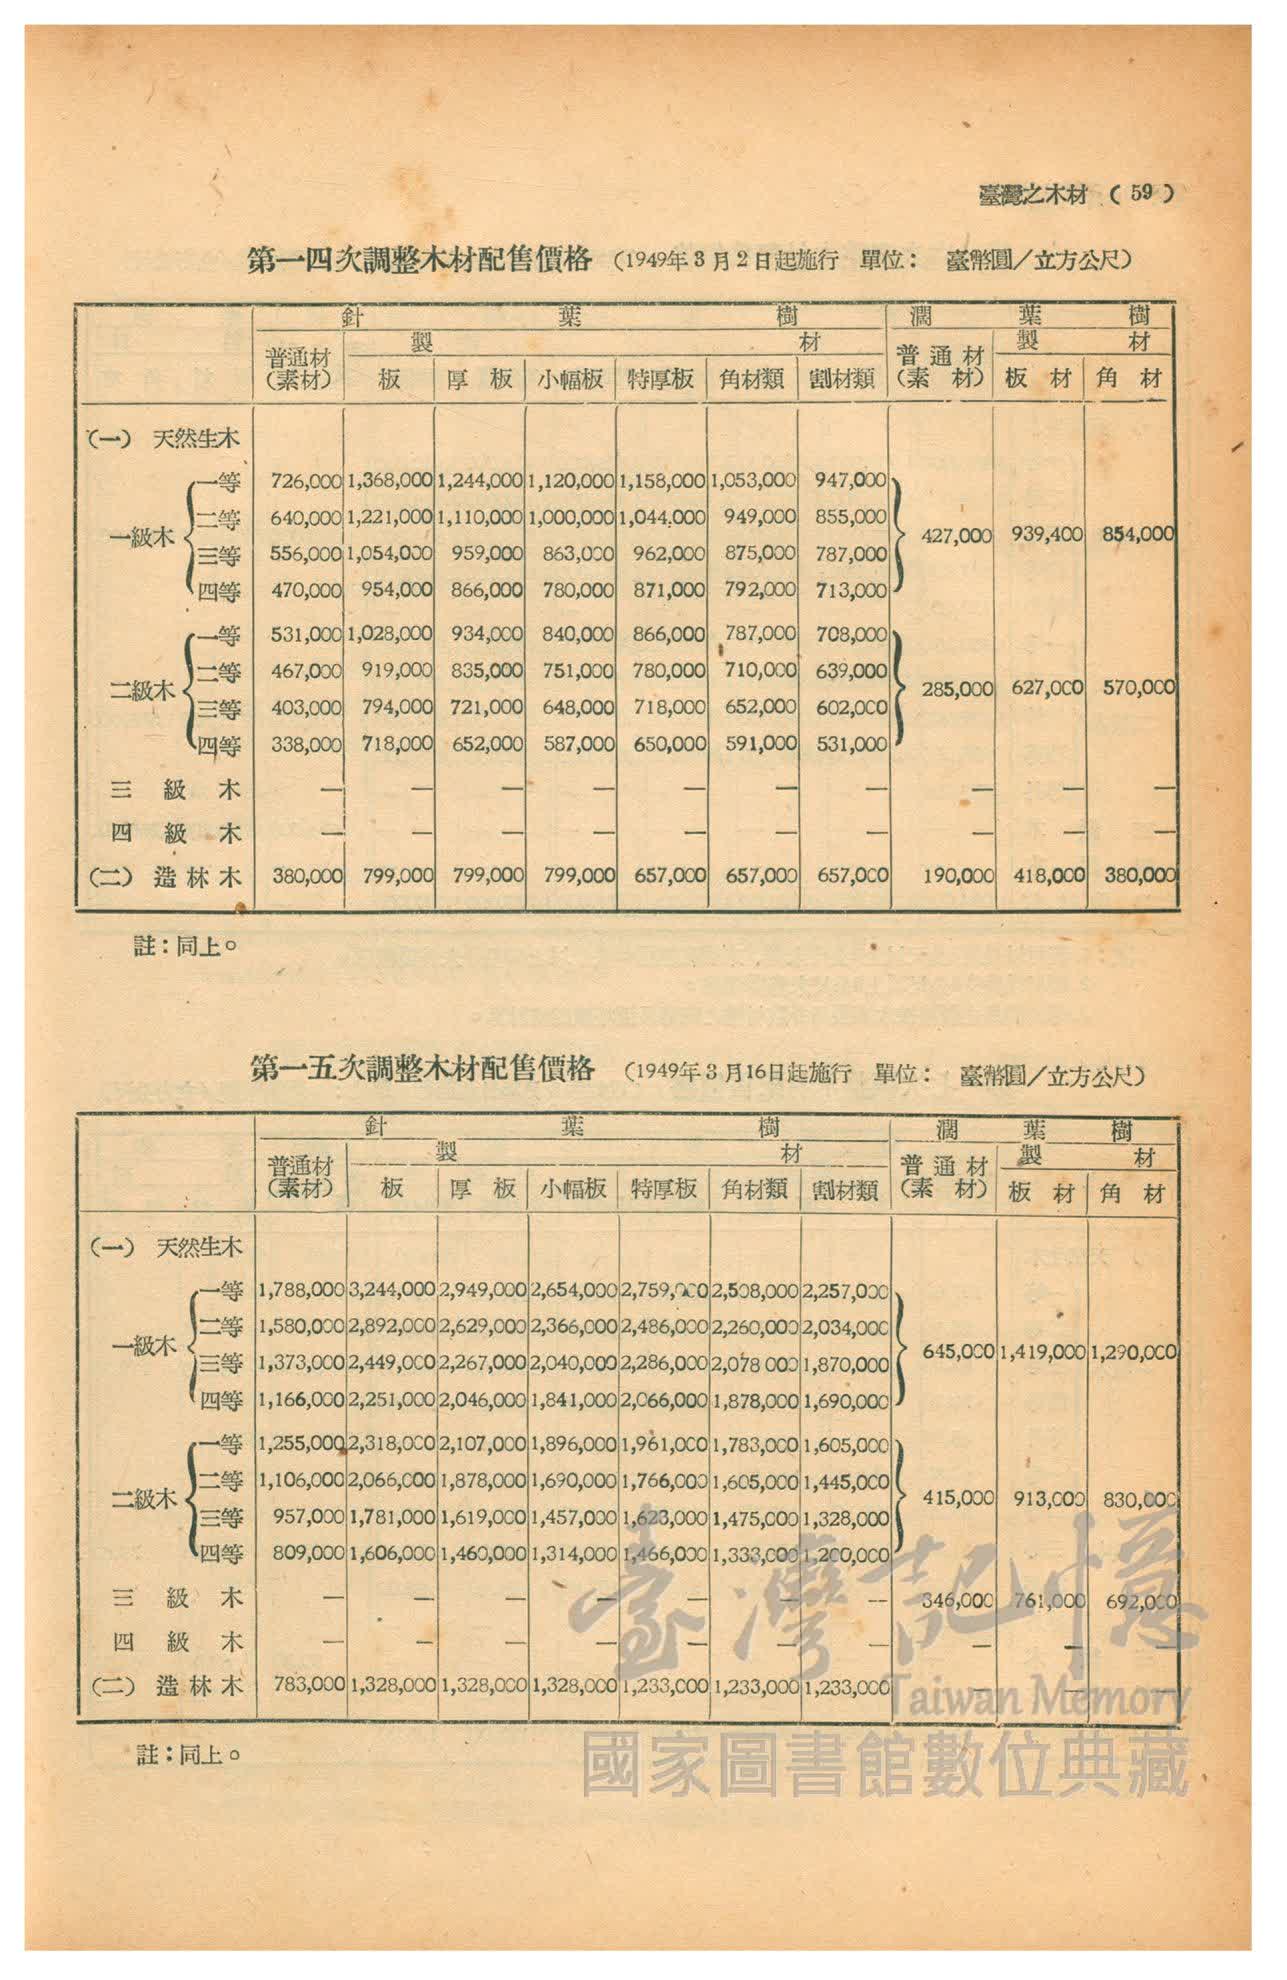 臺灣之木材 ( 59 )
第一四次調整木材配售價格 (1949年3月2日起施行 單位: 臺幣圓/立方公尺)
針 葉 樹 濶 葉 樹
普通材(素材) 製 材 普通材(素 材) 製 材
板 厚 板 小幅板 特厚板 角材類 割材類 板 材 角 材
(一) 天然生木
一級木 427,000 939,400 854,000
一等 726,000 1,368,000 1,244,000 1,120,000 1,158,000 1,053,000 947,000
二等 640,000 1,221,000 1,110,000 1,000,000 1,044.000 949,000 855,000
三等 556,000 1,054,000 959,000 863,000 962,000 875,000 787,000
四等 470,000 954,000 866,000 780,000 871,000 792,000 713,000
二級木 285,000 627,000 570,000
一等 531,000 1,028,000 934,000 840,000 866,000 787,000 708,000
二等 467,000 919,000 835,000 751,000 780,000 710,000 639,000
三等 403,000 794,000 721,000 648,000 718,000 652,000 602,000
四等 338,000 718,000 652,000 587,000 650,000 591,000 531,000
三 級 木 — — — — — — — — — —
四 級 木 — — — — — — — — — —
(二) 造 林 木 380,000 799,000 799,000 799,000 657,000 657,000 657,000 190,000 418,000 380,000
註:同上。
第一五次調整木材配售價格 (1949年3月16日起施行 單位: 臺幣圓/立方公尺)
針 葉 樹 濶 葉 樹
普通材(素材) 製 材 普通材(素 材) 製 材
板 厚 板 小幅板 特厚板 角材類 割材類 板 材 角 材
(一) 天然生木
一級木 645,000 1,419,000 1,290,000
一等 1,788,000 3,244,000 2,949,000 2,654,000 2,759,000 2,508,000 2,257,000
二等 1,580,000 2,892,000 2,629,000 2,366,000 2,486,000 2,260,000 2,034,000
三等 1,373,000 2,449,000 2,267,000 2,040,000 2,286,000 2,078 000 1,870,000
四等 1,166,000 2,251,000 2,046,000 1,841,000 2,066,000 1,878,000 1,690,000
二級木 415,000 913,000 830,000
一等 1,255,000 2,318,000 2,107,000 1,896,000 1,961,000 1,783,000 1,605,000
二等 1,106,000 2,066,000 1,878,000 1,690,000 1,766,000 1,605,000 1,445,000
三等 957,000 1,781,000 1,619,000 1,457,000 1,623,000 1,475,000 1,328,000
四等 809,000 1,606,000 1,460,000 1,314,000 1,466,000 1,333,000 1,200,000
三 級 木 — — — — — — — 346,000 761,000 692,000
四 級 木 — — — — — — — — — —
(二) 造 林 木 783,000 1,328,000 1,328,000 1,328,000 1,233,000 1,233,000 1,233,000 — — —
註:同上。
臺灣記憶
Taiwan Memory
國家圖書館數位典藏